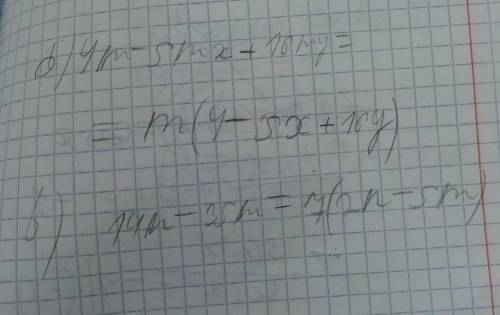 б) 4m - 5mx + 16my =
= m(4 - 5x + 16y)
в) 14n - 35m = 7(2n - 5m)